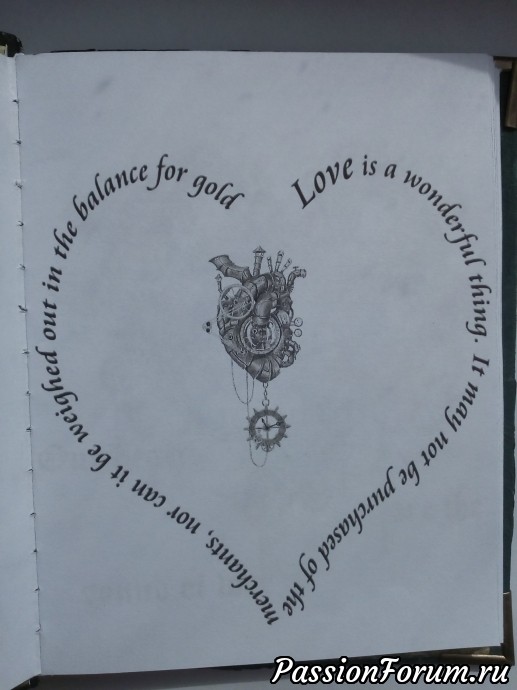 Love is a wonderful thing. It may not be purchased of the
merchants, nor can it be weighed out in the balance for gold
PassionForum.ru